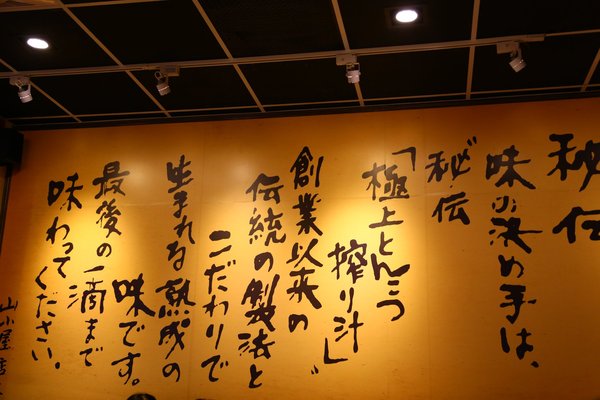 秘伝
味の決め手は、
秘伝
「極上とんこつ
搾り汁」。
創業以来の
伝統の製法と
こだわりで
生まれた熟成の
味です。
最後の一滴まで
味わってください。
山小屋店